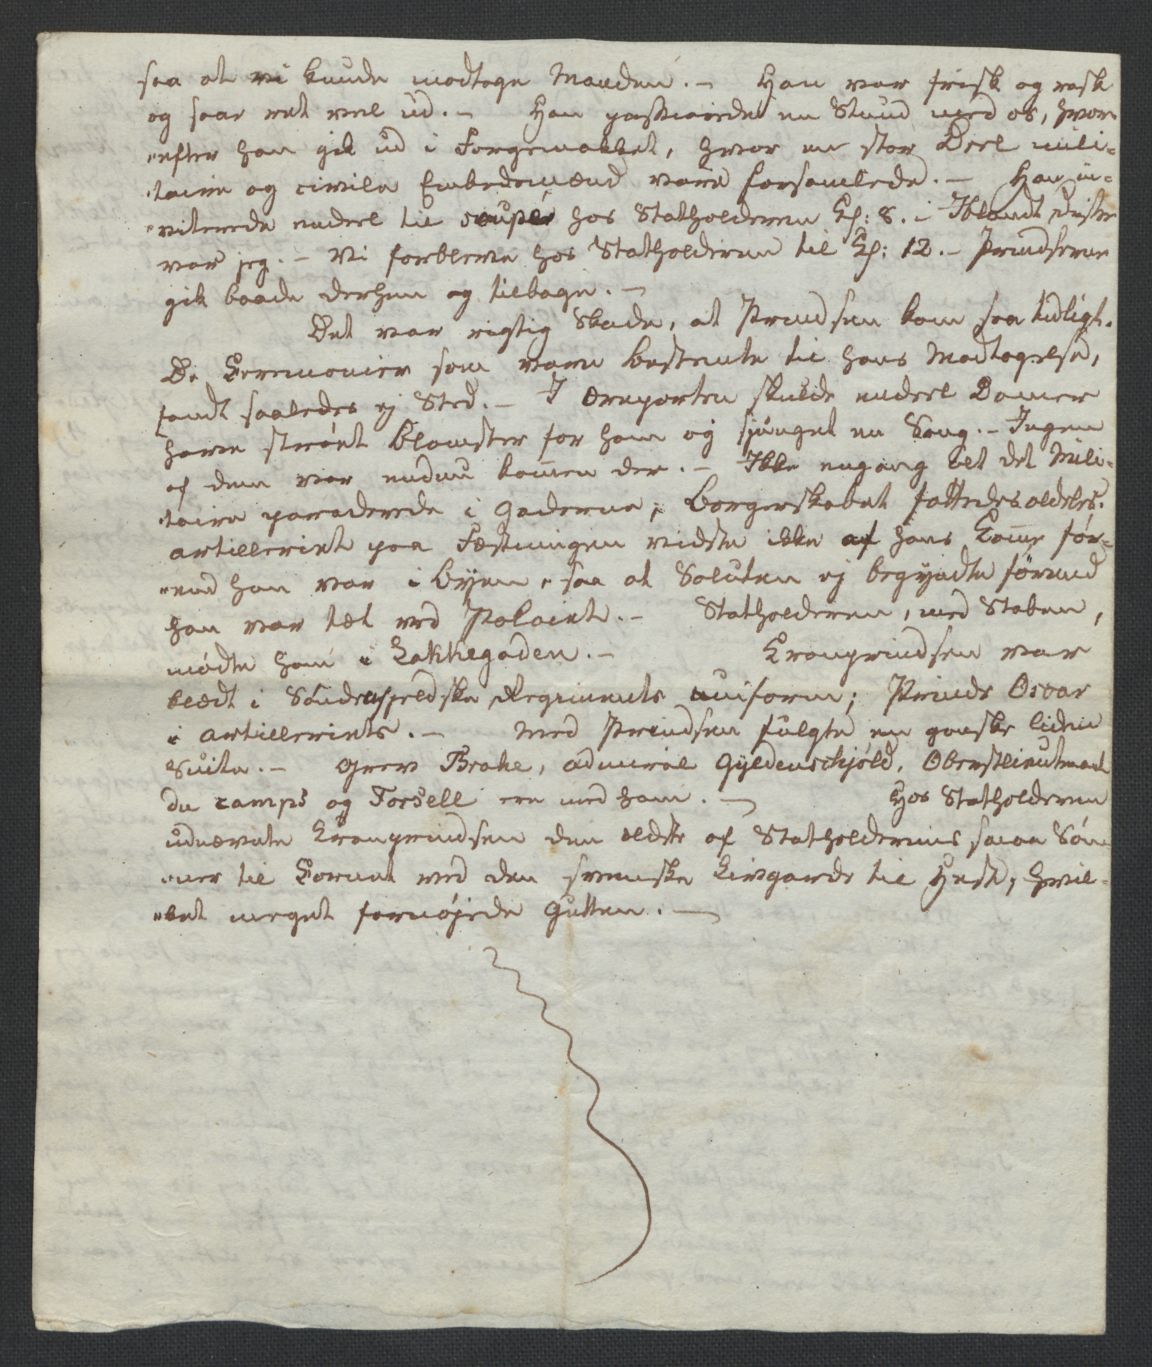 saa at vi kunde modtage Manden. – Han var frisk og rask
og saae ret vel ud. – Han passiarede en Stund med os, hvor-
efter han gik ud i Forgemakket, hvor en stor Deel mili-
taire og civile Embedsmænd vare forsamlede. – Han in-
viterede endeel til souper hos Statholderen Kl: 8. – Iblandt disse
var jeg. – Vi forbleve hos Statholderen til Kl: 12. – Prindserne
gik baade derhen og tilbage. –
Det var rigtig Skade, at Prindsen kom saa tidligt.
De Ceremonier som vare bestemte til hans Modtagelse,
fandt saaledes ej Sted. – I Æreporten skulde endeel Damer
have strøet Blomster for ham og sjunget en Sang. – Ingen
af dem var endnu kom̅en der. – Ikke engang let det Mili-
taire paraderede i Gaderne; Borgerskabet fattedes aldeles.
Artilleriet paa Fæstningen vidste ikke af hans Kom̅e før-
end han var i Byen, saa at Saluten ej begyndte førend
han var tæt ved Palaiet. – Statholderen, med Staben,
mødte ham i Lakkegaden. – Kronprindsen var
klædt i Søndenfjeldske Regiments uniform; Prinds Oscar
i Artilleriets. – Med Prindsen fulgte en ganske liden
Suite. – Grev Brahe, Admiral Gyldenschjöld, Oberstlieutnant
du camps og Forsell ere med ham. – Hos Statholderen
udnævnte Kronprindsen den ældste af Statholderens smaa Søn-
ner til Cornet ved den svenske Livgarde til Hest, hvil-
ket meget fornøjede Gutten. –